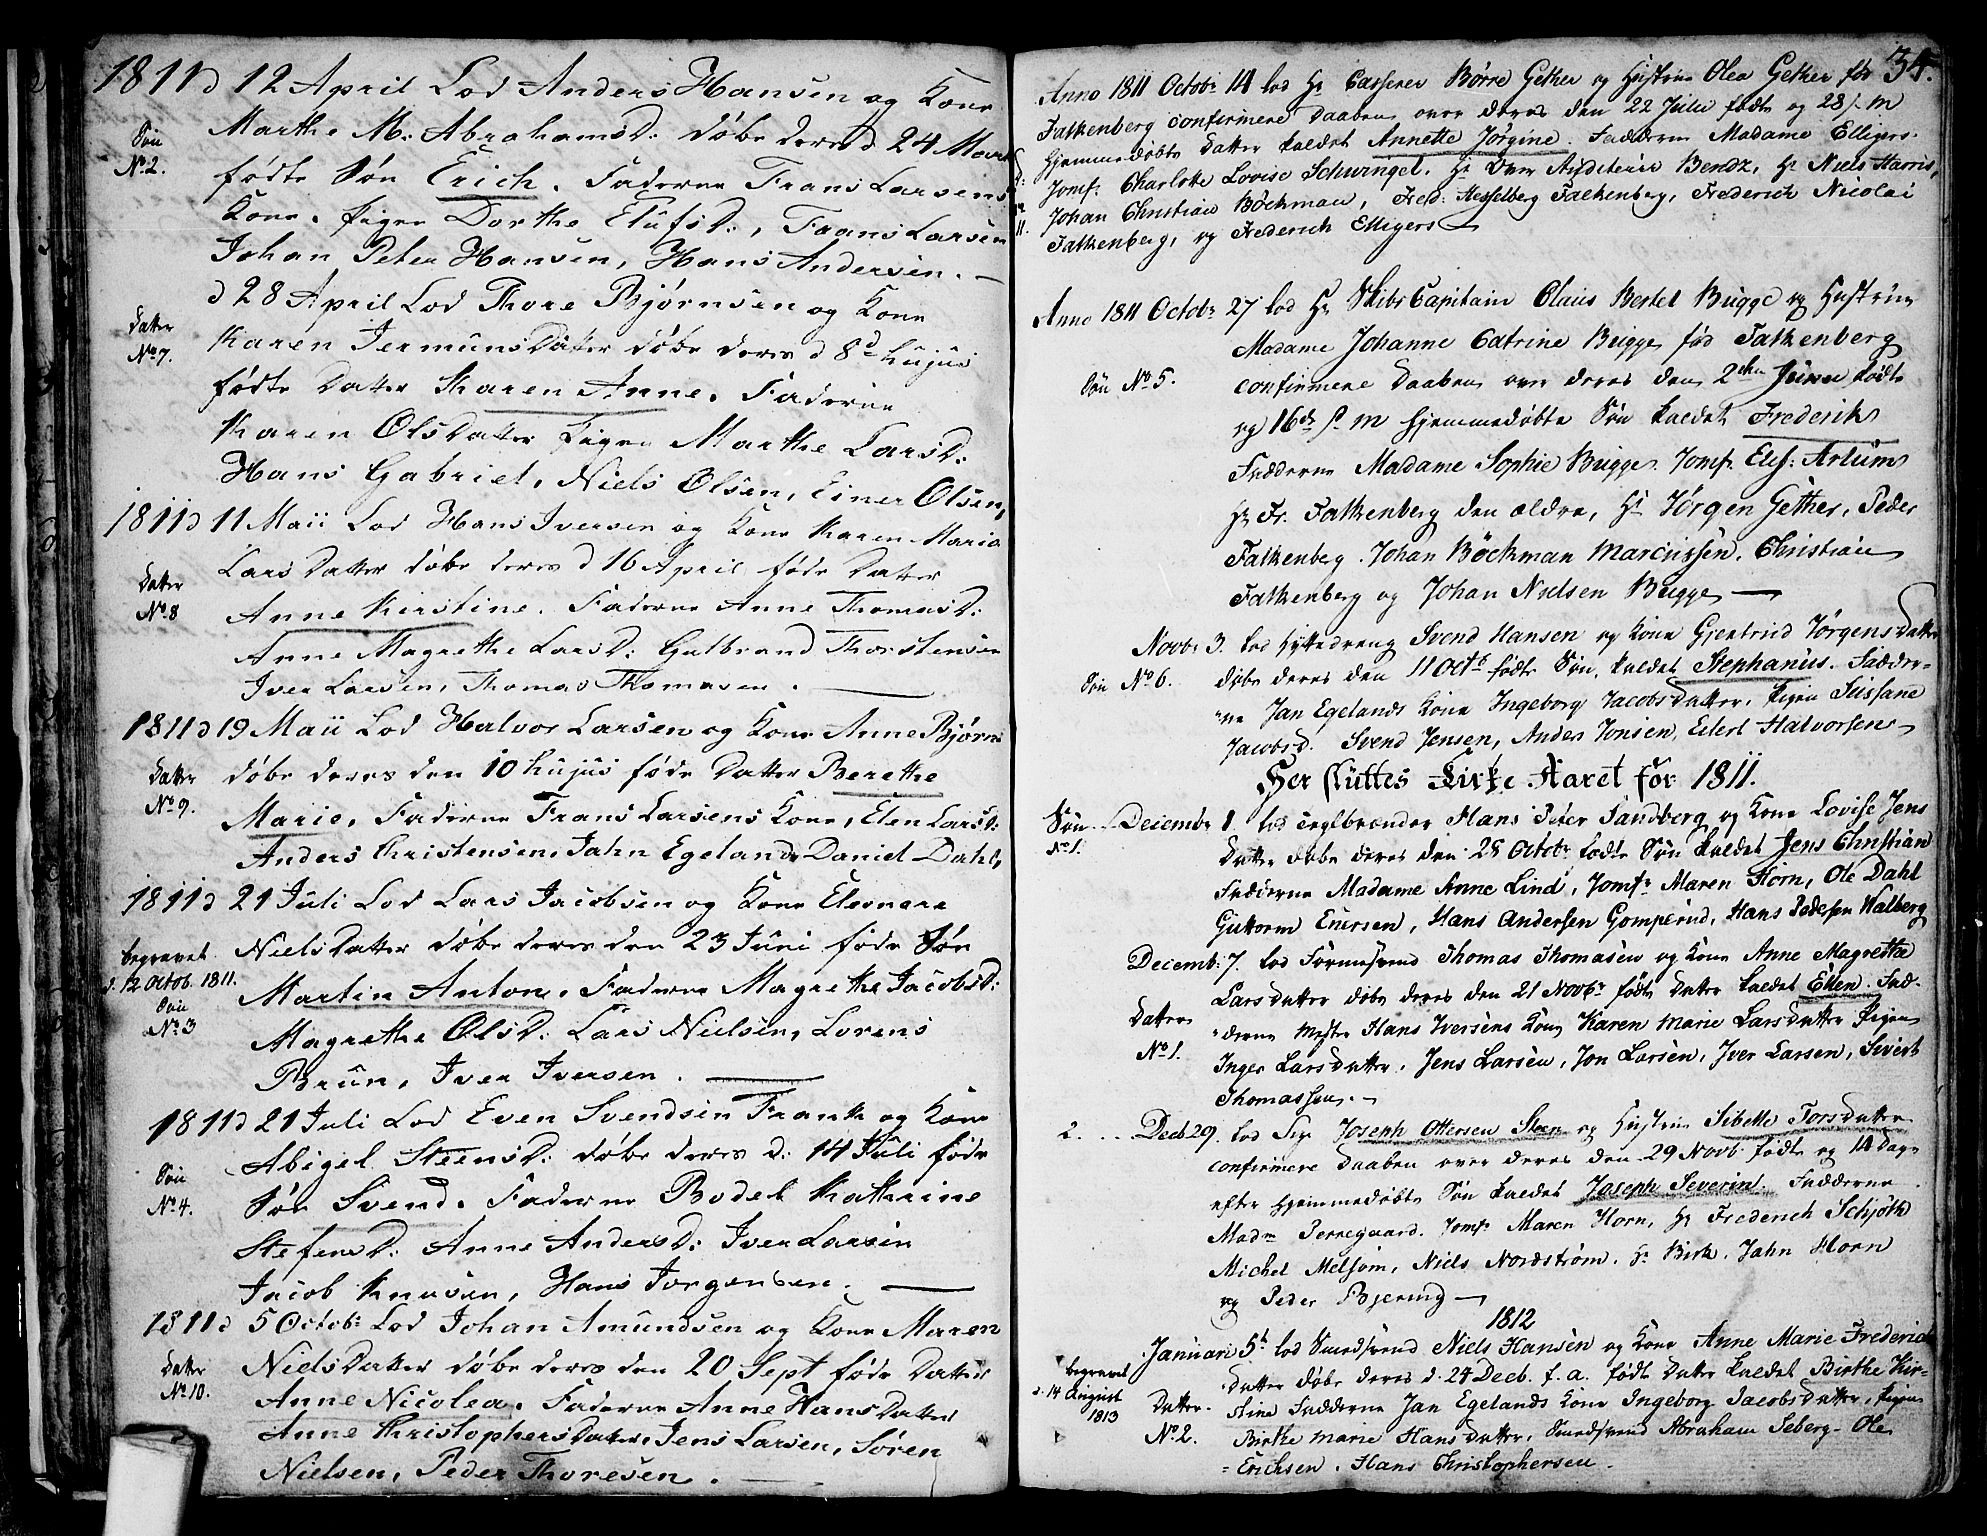 1811 d 12 April Lod Anders Hansen og Kone
Marthe M: AbrahamsD: døbe deres d 24 Mart
Søn
No. 2.
fødte Søn Erich. Faderne Frans Larsens
Kone. Pigen Dorthe ElufsD:, Frans Larsen
Johan Peter Hansen, Hans Andersen. —
d 28 April Lod Thore Bjørnsen og Kone
Datter
No. 7.
Karen JermunsDatter døbe deres d 8d hujus
fødte Datter Karen Anne. Faderne
Karen OlsDatter Pigen Marthe LarsD:
Hans Gabriel, Niels Olsen, Einer Olsen,
1811 d 11 Maii Lod Hans Iversen og Kone Karen Maria
Datter
No. 8
LarsDatter døbe deres d 16 Aprilføde Datter
Anne Kirstine. Faderne Anne ThomasD:
Anne Magrethe LarsD: Gulbrand Thorstensen
Iver Larsen, Thomas Thomasen. —
1811 d 19 Maii Lod Halvor Larsen og Kone Anne Bjørns
Datter
No. 9.
døbe deres den 10 hujus føde Datter Berethe
Marie, Faderne Frans Larsens Kone, Elen LarsD:
Anders Christensen, Jahn Egeland, Daniel Dahl,
1811 d 21 Juli Lod Lars Jacobsen og Kone Eleonare
begravet
d. 12 Octob. 1811.
Søn
No. 3
NielsDatter døbe deres den 23 Juni føde Søn
Martin Anton. Faderne Magrethe JacobsD:
Magrethe OlsD: Lars Nielsen, Lorens
Brun, Iver Iversen. —
1811 d 21 Juli Lod Even Svendsen Frank og Kone
Søn
No. 4.
Abigel SteensD: døbe deres d: 14 Juli føde
Søn Svend. Faderne Bodel Kathrine
StefensD: Anne AndersD: Iver Larsen
Jacob Knusen, Hans Jorgensen. —
1811 d 5 Octob: Lod Johan Amundsen og Kone Maren
Datter
No. 10.
NielsDatter døbe deres den 20 Sept føde Datter
Anne Nicolea. Faderne Anne HansDatter
Anne ChristophersDatter, Jens Larsen, Søren
Nielsen, Peder Thoresen. —
34.
Anno 1811 Octobr 14 lod Hr Casserer Børre Gether og Hustrue Olea Gether fød
Falkenberg confirmere Daaben over deres den 22 Julii fødte og 28 s. m
hjemmedøbte Datter kaldet Annette Jørgine. Fadderne Madame Elligers.
Jomfr Charlotte Lovise Schwingel. Hr Over Auditeur Bendz, Hr Niels Harris,
Johan Christian Böckman, Fred: Hesselberg Falkenberg, Frederich Nicolai
Falkenberg, og Frederich Elligers —
Anno 1811 Octobr 27 lod Hr SkibsCapitain Claus Bertel Bugge og Hustrue
Madame Johanne Catrine Bugge fød Falkenberg
Søn No. 5.
confirmere Daaben over deres den 2den Junii fødte
og 16de s. m hjemmedøbte Søn kaldet Frederik
Fadderne Madame Sophie Bugge. Jomfr Elis: Arlum
Hr Fr. Falkenberg den ældre, Hr Jørgen Gether, Peder
Falkenberg. Johan Böckman Marcussen. Christian
Falkenberg og Johan Nielsen Bugge —
Novbr 3. lod Hyttedreng Svend Hansen og Kone Gjertrud JørgensDatter
Søn No. 6.
døbe deres den 11 Octb fødte Søn, kaldet Stephanus. Fadder-
ne Jan Egelands Kone Ingeborg JacobsDatter, Pigen Sussane
JacobsD. Svend Jensen, Anders Jonsen, Eilert Halvorsen
Her sluttes Kirke Aaret for 1811.
Søn
No. 1.
Decembr 1. lod Teglbrænder Hans Peter Sandberg og Kone Lovise Jens
Datter døbe deres den 28 Octobr fødte Søn kaldet Jens Christian
Fadderne Madame Anne Lind, Jomfr Maren Horn, Ole Dahl
Guttorm Enersen, Hans Andersen Gomperud, Hans Pedersen Walberg
Decemb: 7. lod Formesvend Thomas Thomasen og Kone Anne Magretha
Datter
No. 1.
LarsDatter døbe deres den 21 Novbr fødte Datter kaldet Ellen. Fad-
derne Mester Hans Iversens Kone Karen Marie LarsDatter Pigen
Inger LarsDatter. Jens Larsen, Jon Larsen, Iver Larsen, Sivert
Thomassen. —
2. Decb 29. lod Sigr Joseph Ottersen Steen og Hustrue Sibelle TorsDatter
confirmere Daaben over deres den 29 Novb fødte og 14 Dage
efter hjemmedøbte Søn kaldet Joseph Severin. Fadderne
Madm Pernegaard. Jomfr Maren Horn, Hr Frederich Schjøth
Michel Melsom, Niels Nordstrøm. Hr Birk. Jahn Horn
og Peder Bjering —
1812
Januari 5t lod Smedsvend Niels Hansen og Kone Anne Marie Frederic
begravet
d. 14 August
1813
Datter
No. 2.
Datter døbe deres d. 24 Decb. f. a. fødte Datter kaldet Birthe Kir-
stine Fadderne Jan Egelands Kone Ingeborg JacobsDatter, Pigen
Birthe Marie HansDatter, Smedsvend Abraham Seberg. Ole
Erichsen. Hans Christophersen.